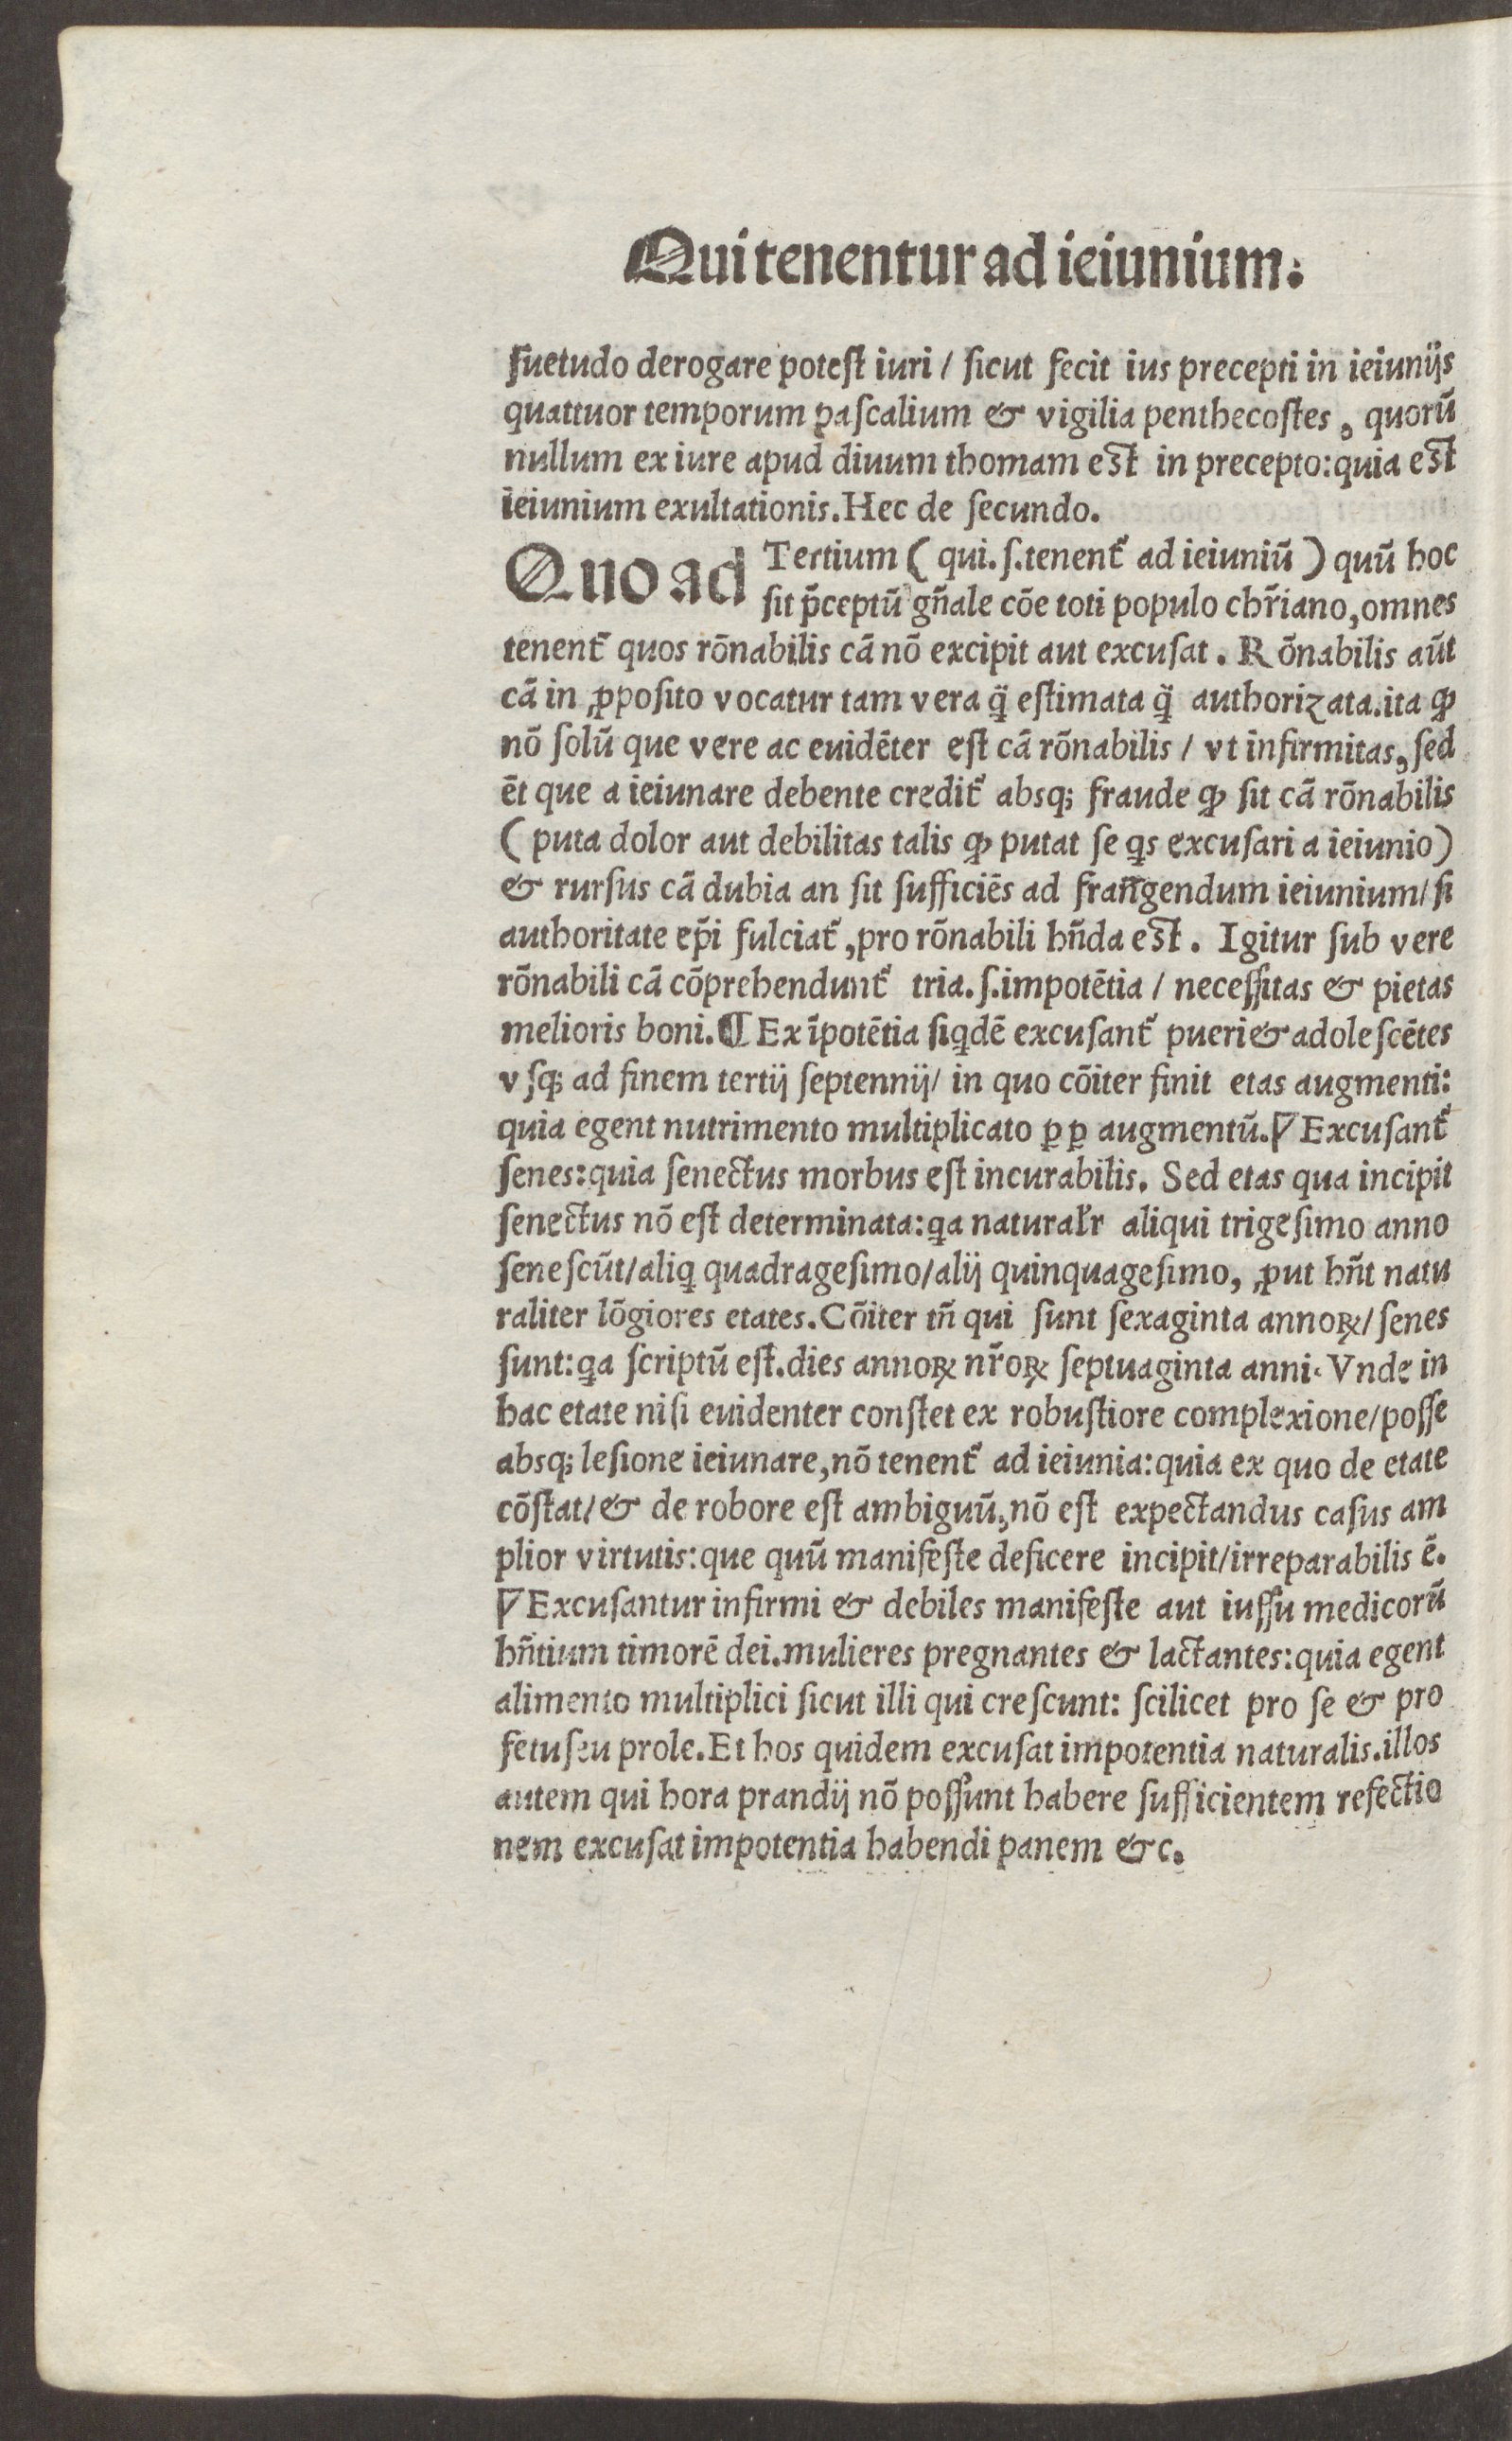 Qui tenentur ad ieiunium.
ſuetudo derogare poteſt iuri / ſicut fecit ius precepti in ieiunijs
quattuor temporum paſcalium & vigilia penthecoſtes, quorū
nullum ex iure apud diuum thomam eſt in precepto:quia eſt
ieiunium exultationis.Hec de ſecundo.
Quo ad Tertium ( qui.ſ.tenent᷑ ad ieiuniū ) quū hoc
ſit p̄ceptū gñale cōe toti populo chr̄iano,omnes
tenent᷑ quos rōnabilis cā nō excipit aut excuſat. Rōnabilis aūt
cā in ꝓpoſito vocatur tam vera q̈̄ eſtimata q̈̄ authorizata.ita ꝙ
nō ſolū que vere ac euidēter eſt cā rōnabilis / vt infirmitas, ſed
ēt que a ieiunare debente credit᷑ absq; fraude ꝙ ſit cā rōnabilis
( puta dolor aut debilitas talis ꝙ putat ſe ꝗs excuſari a ieiunio)
& rurſus cā dubia an ſit ſufficiēs ad fran̄gendum ieiunium/ ſi
authoritate ep̄i fulciat᷑,pro rōnabili hñda eſt. Igitur ſub vere
rōnabili cā cōprehendunt᷑ tria.ſ.impotētia / neceſſitas & pietas
melioris boni.¶ Ex īpotētia ſiꝗdē excuſant᷑ pueri & adoleſcētes
vſq; ad finem tertij ſeptennij/ in quo cōiter finit etas augmenti:
quia egent nutrimento multiplicato ꝑꝑ augmentū.▽ Excuſant᷑
ſenes:quia ſenectus morbus eſt incurabilis. Sed etas qua incipit
ſenectus nō eſt determinata:ꝗa naturałr aliqui trigeſimo anno
ſeneſcūt/aliꝗ quadrageſimo/alij quinquageſimo, ꝓut hñt natu
raliter lōgiores etates.Cōiter tñ qui ſunt ſexaginta annoꝝ/ ſenes
ſunt:ꝗa ſcriptū eſt.dies annoꝝ nr̄oꝝ ſeptuaginta anni. Vnde in
hac etate niſi euidenter conſtet ex robuſtiore complexione/poſſe
absq; leſione ieiunare,nō tenent᷑ ad ieiunia:quia ex quo de etate
cōſtat/& de robore eſt ambiguū,nō eſt expectandus caſus am
plior virtutis:que quū manifeſte deficere incipit/irreparabilis ē.
▽ Excuſantur infirmi & debiles manifeſte aut iuſſu medicorū
hñtium timorē dei.mulieres pregnantes & lactantes:quia egent
alimento multiplici ſicut illi qui creſcunt: ſcilicet pro ſe & pro
fetu ſeu prole.Et hos quidem excuſat impotentia naturalis.illos
autem qui hora prandij nō poſſunt habere ſufficientem refectio
nem excuſat impotentia habendi panem &c.